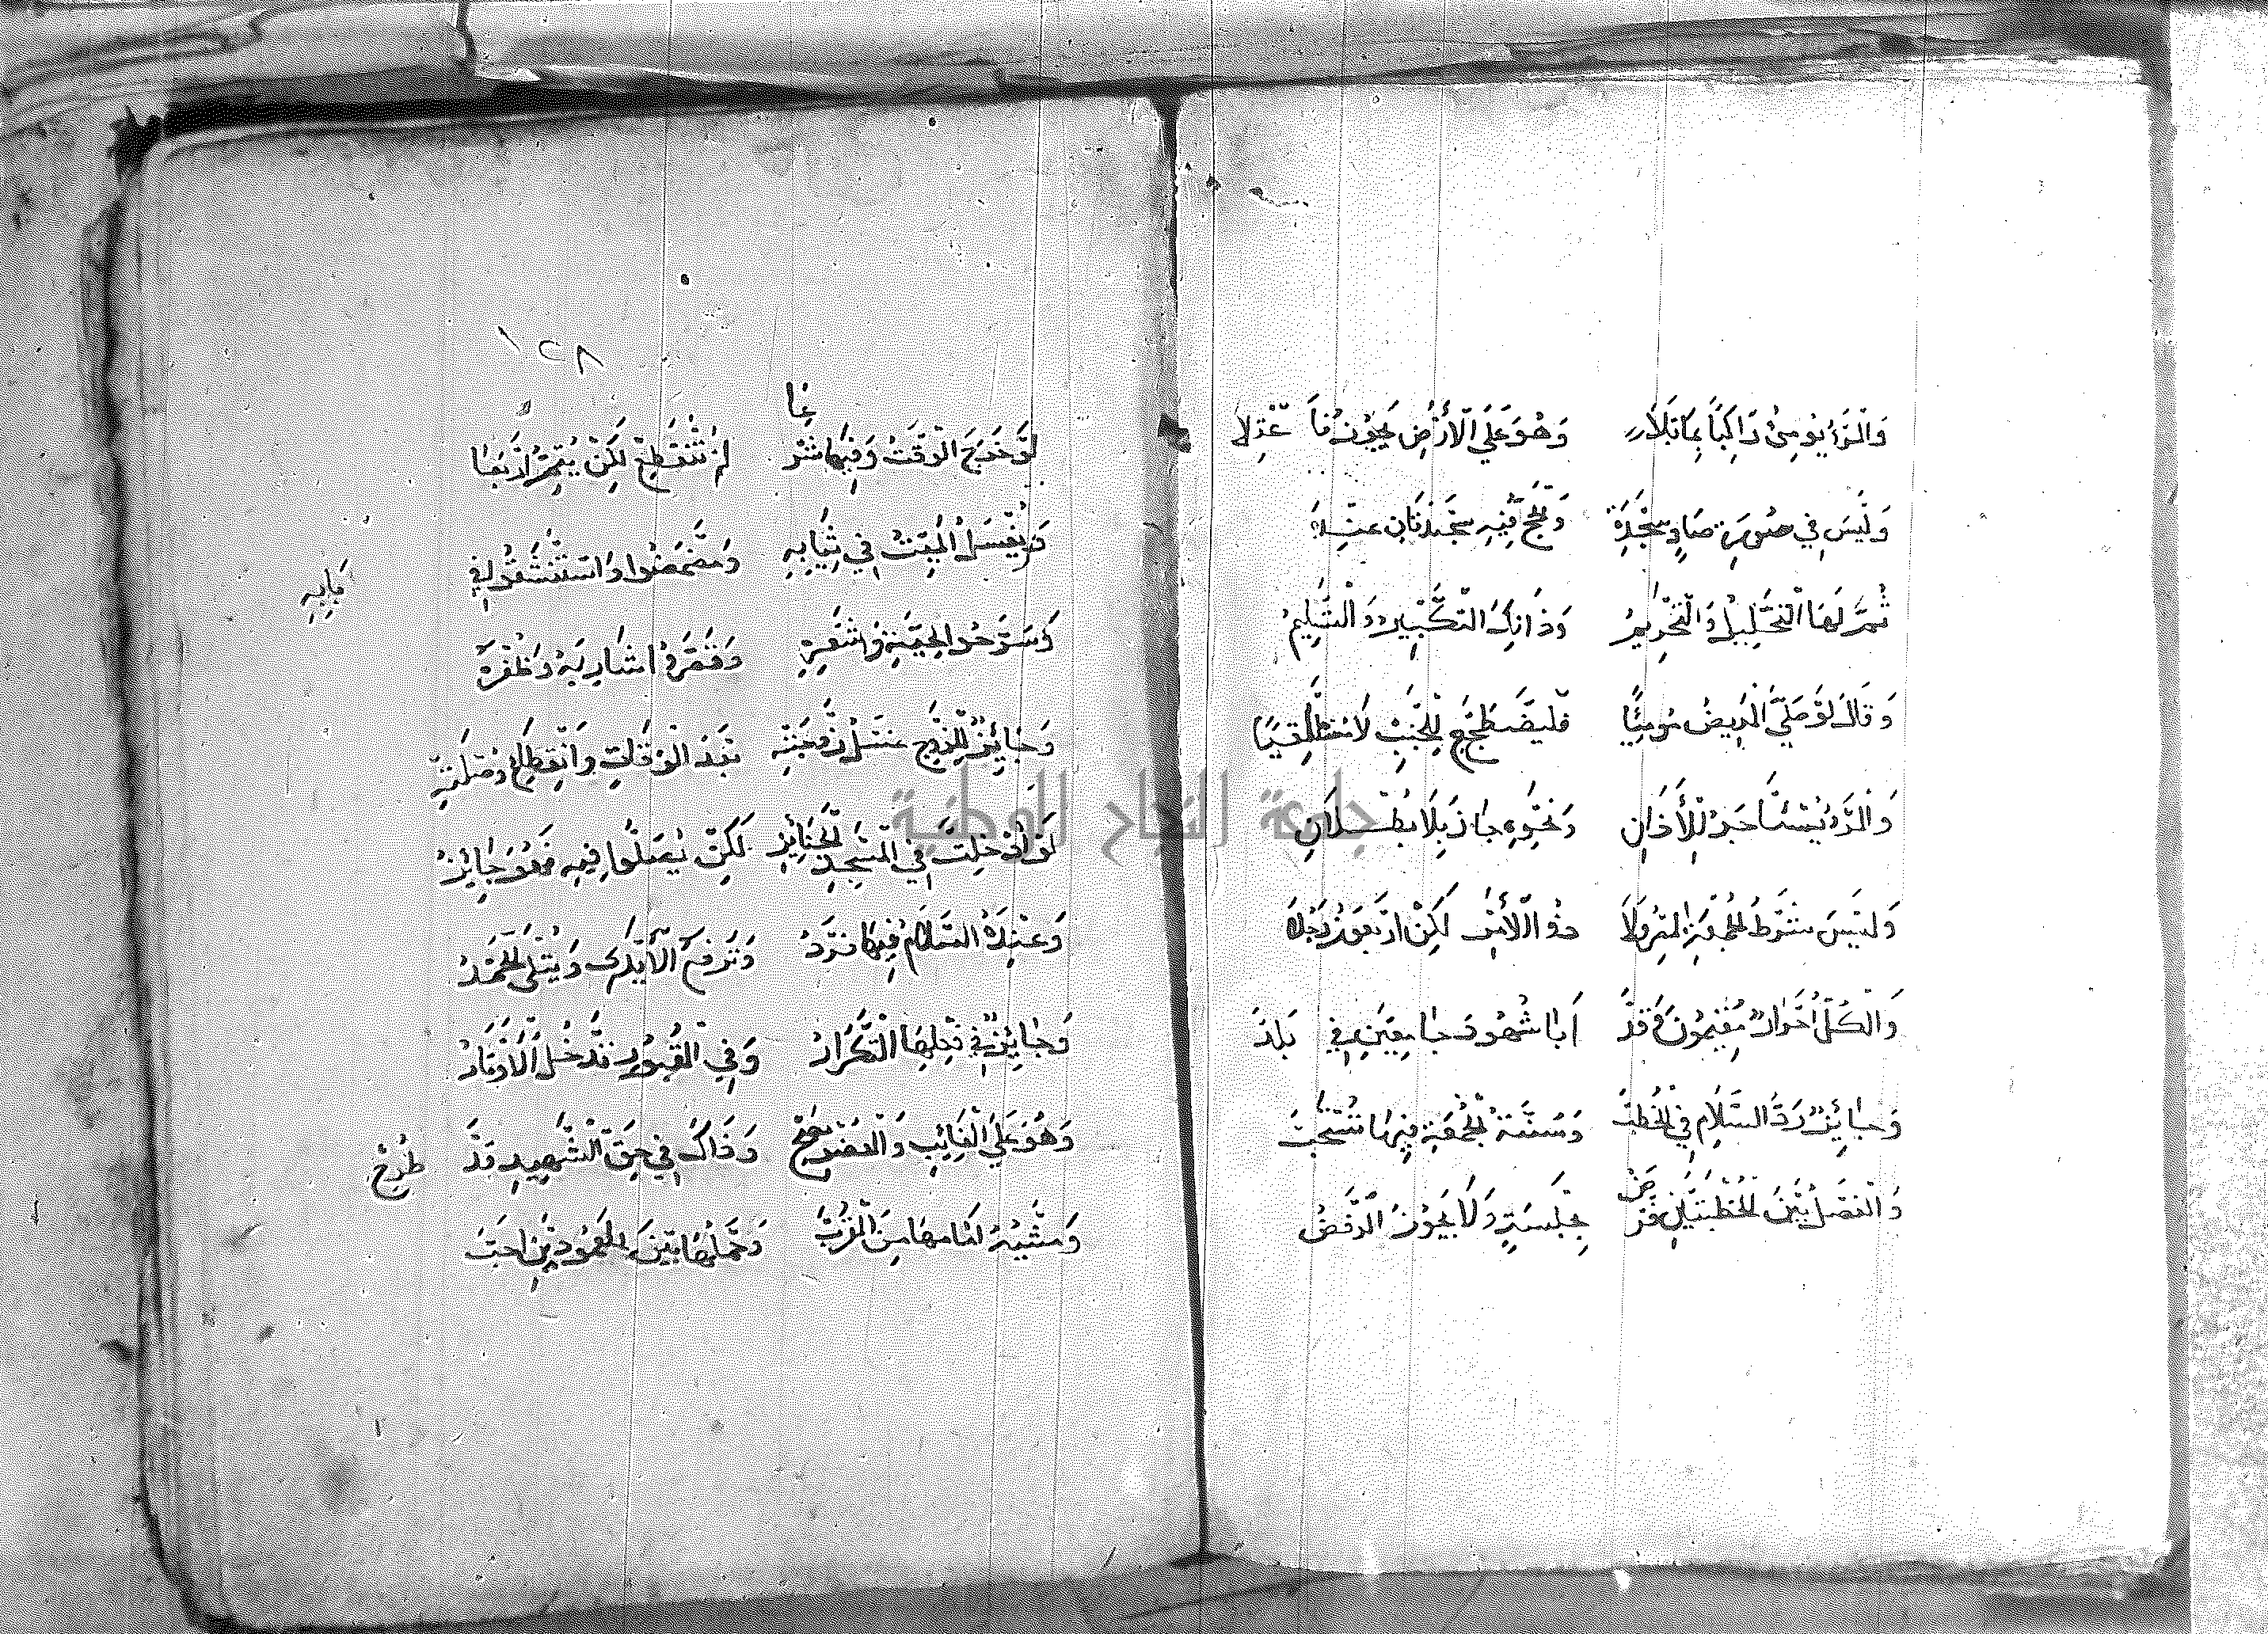 وَلَيْسَ فِي سُورَةِ صَادٍ سَجْدَةْ وَالْحَجِّ فِيهِ سَجْدَتَانِ عِنْدَهْ
ثُمَّ لَهَا التَّحْلِيلُ وَالتَّحْرِيمُ وَذَانِكَ التَّكْبِيرُ وَالتَّسْلِيمُ
وَقَالَ لَوْ صَلَّى الْمَرِيضُ مُومِيًا فَلْيَضْطَجِعْ لِلْجَنْبِ لَا مُسْتَلْقِيًا
وَالْمَرْءُ يُسْتَأْجَرُ لِلْأَذَانِ وَنَحْوِهِ جَازَ بِلَا بُطْلَانِ
وَلَيْسَ شَرْطُ الْجُمْعَةِ الْمِصْرَ وَلَا ذُو الْأَمْرِ لَكِنْ أَرْبَعُونَ رَجُلَا
وَالْكُلُّ أَحْرَارٌ مُقِيمُونَ وَقَدْ أَبَا شُهُودَ جَامِعَيْنِ فِي بَلَدْ
وَجَائِزٌ رَدُّ السَّلَامِ فِي الْخُطَبْ وَسُنَّةُ الْجُمْعَةِ فِيهَا تُسْتَحَبْ
وَالْفَصْلُ بَيْنَ الْخُطْبَتَيْنِ فَرْضُ بِجَلْسَةٍ وَلَا يَجُوزُ الرَّفْضُ
١٢٨
لَوْ خَرَجَ الْوَقْتُ وَفِيهَا شَرَعَا لَمْ تَنْقَطِعْ لَكِنْ يُتِمُّ أَرْبَعَا
وَيُغْسَلُ الْمَيِّتُ فِي ثِيَابِهِ وَمَضْمَضُوا وَاسْتَنْشَقُوا فِي مَا بِهِ
وَسَرَّحُوا لِحْيَتَهُ وَشَعْرَهْ وَقَصَّرُوا شَارِبَهُ وَظُفْرَهْ
وَجَائِزٌ لِلزَّوْجِ غَسْلُ زَوْجَتِهْ بَعْدَ الْوَفَاةِ وَانْقِطَاعِ وُصْلَتِهْ
لَوْ أُدْخِلَتْ فِي الْمَسْجِدِ الْجَنَائِزُ لَكِنْ يُصَلُّوا فِيهِ فَهُوَ جَائِزُ
وَعِنْدَهُ السَّلَامُ فِيهَا فَرْدُ وَتُرْفَعُ الْأَيْدِي وَيُتْلَى الْحَمْدُ
وَجَائِزٌ فِي فِعْلِهَا التَّكْرَارُ وَفِي الْقُبُورِ تُدْخَلُ الْأَوْتَارُ
وَهُوَ عَلَى الْغَائِبِ وَالْعُضْوِ يَصِحْ وَذَاكَ فِي حَقِّ الشَّهِيدِ قَدْ طُرِحْ
وَمَشْيُهُ أَمَامَهَا مِنَ الْقُرَبْ وَحَمْلُهَا بَيْنَ الْعَمُودَيْنِ أَحَبْ
جامعة النجاح الوطنية